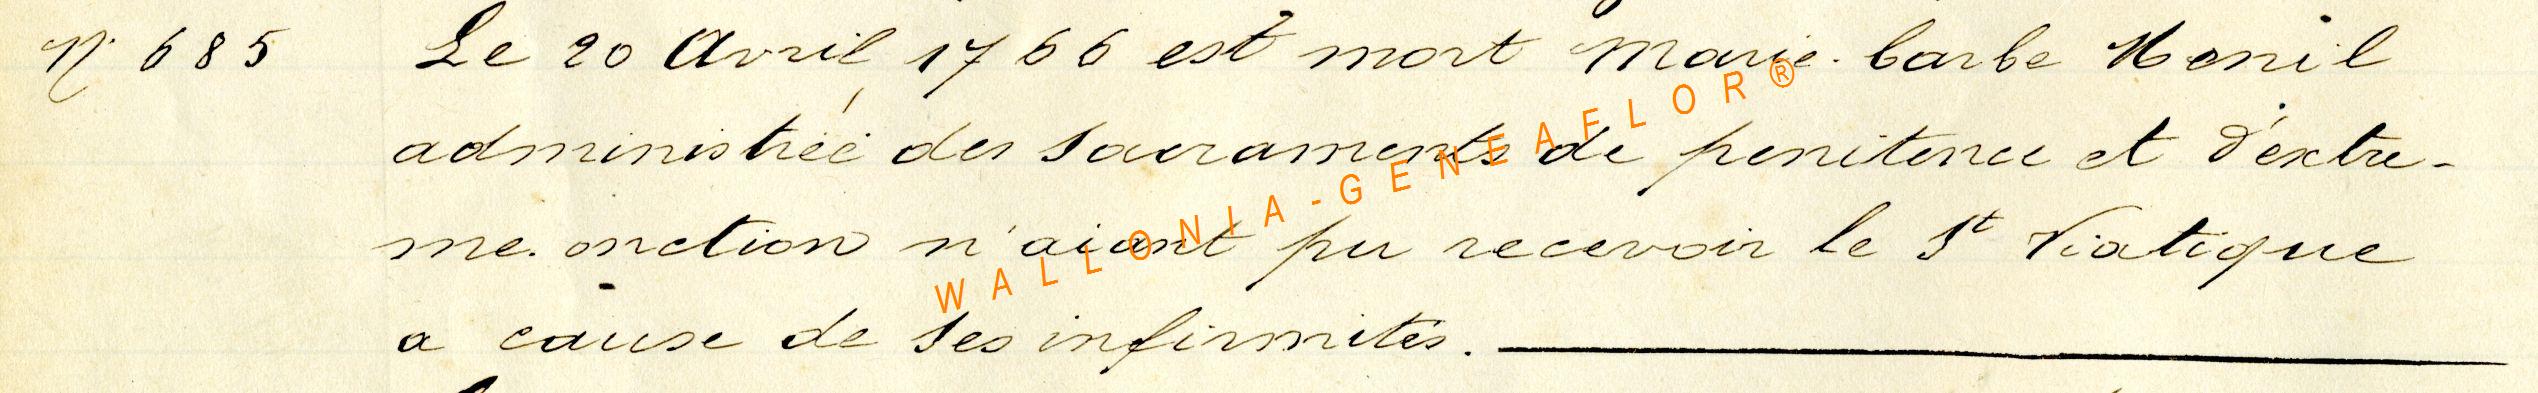 N° 685 Le 20 Avril 1766 est mort Marie-barbe Henil
administrée des Sacraments de penitence et d'extre-
me-onction n'aiant pu recevoir le St Viatique
a cause de ses infirmités.
WALLONIA-GENEAFLOR®